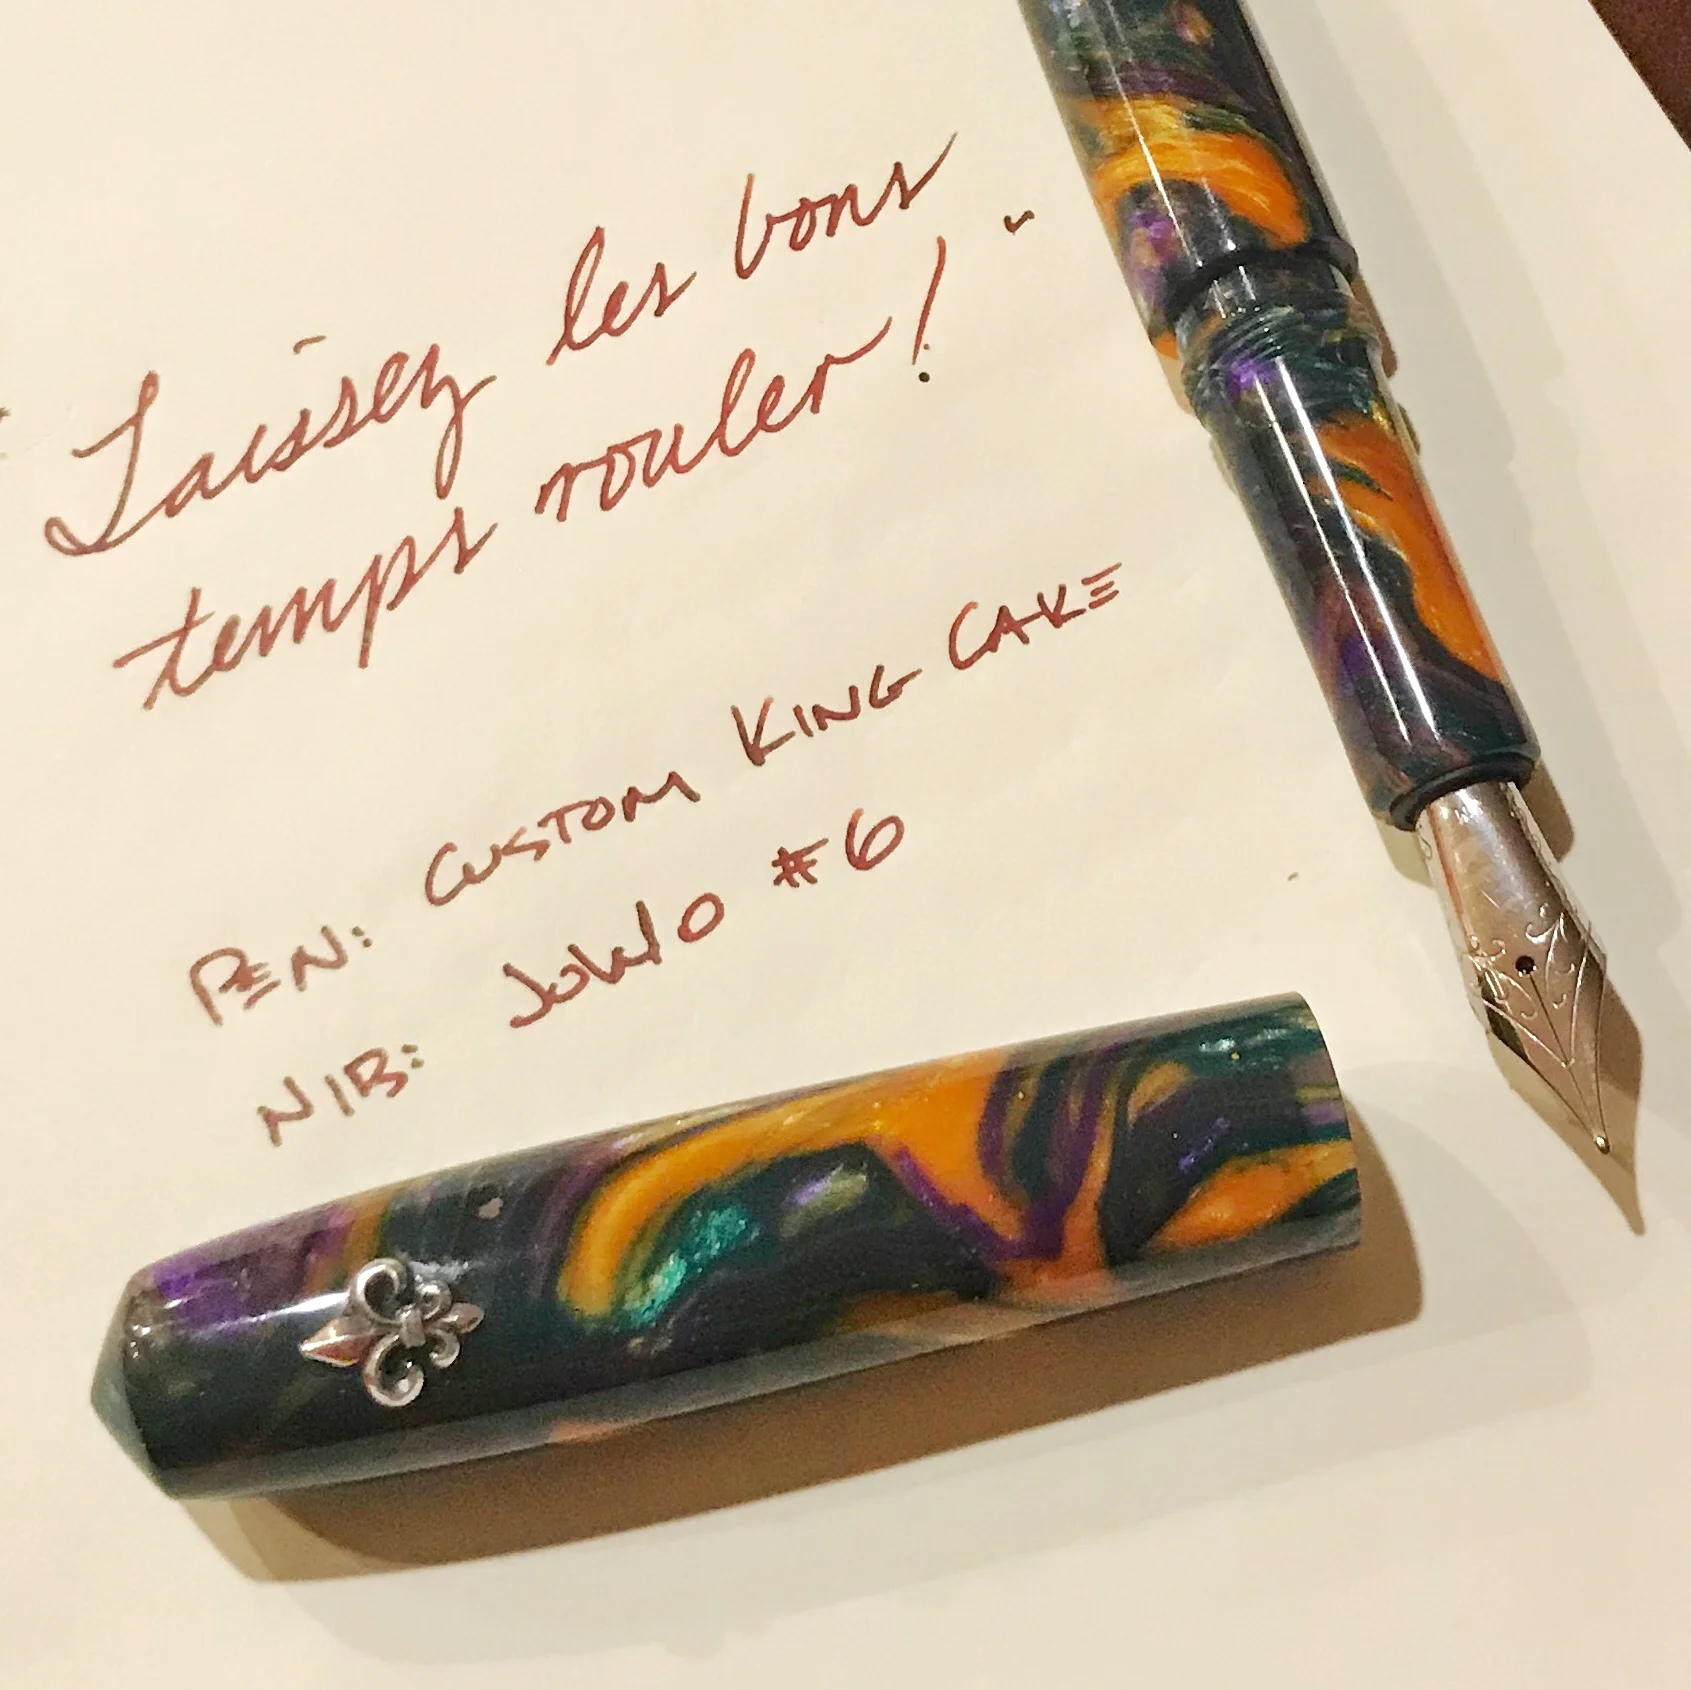 "Laissez les bons
temps rouler!"
PEN: CUSTOM KING CAKE
NIB: JOWO #6